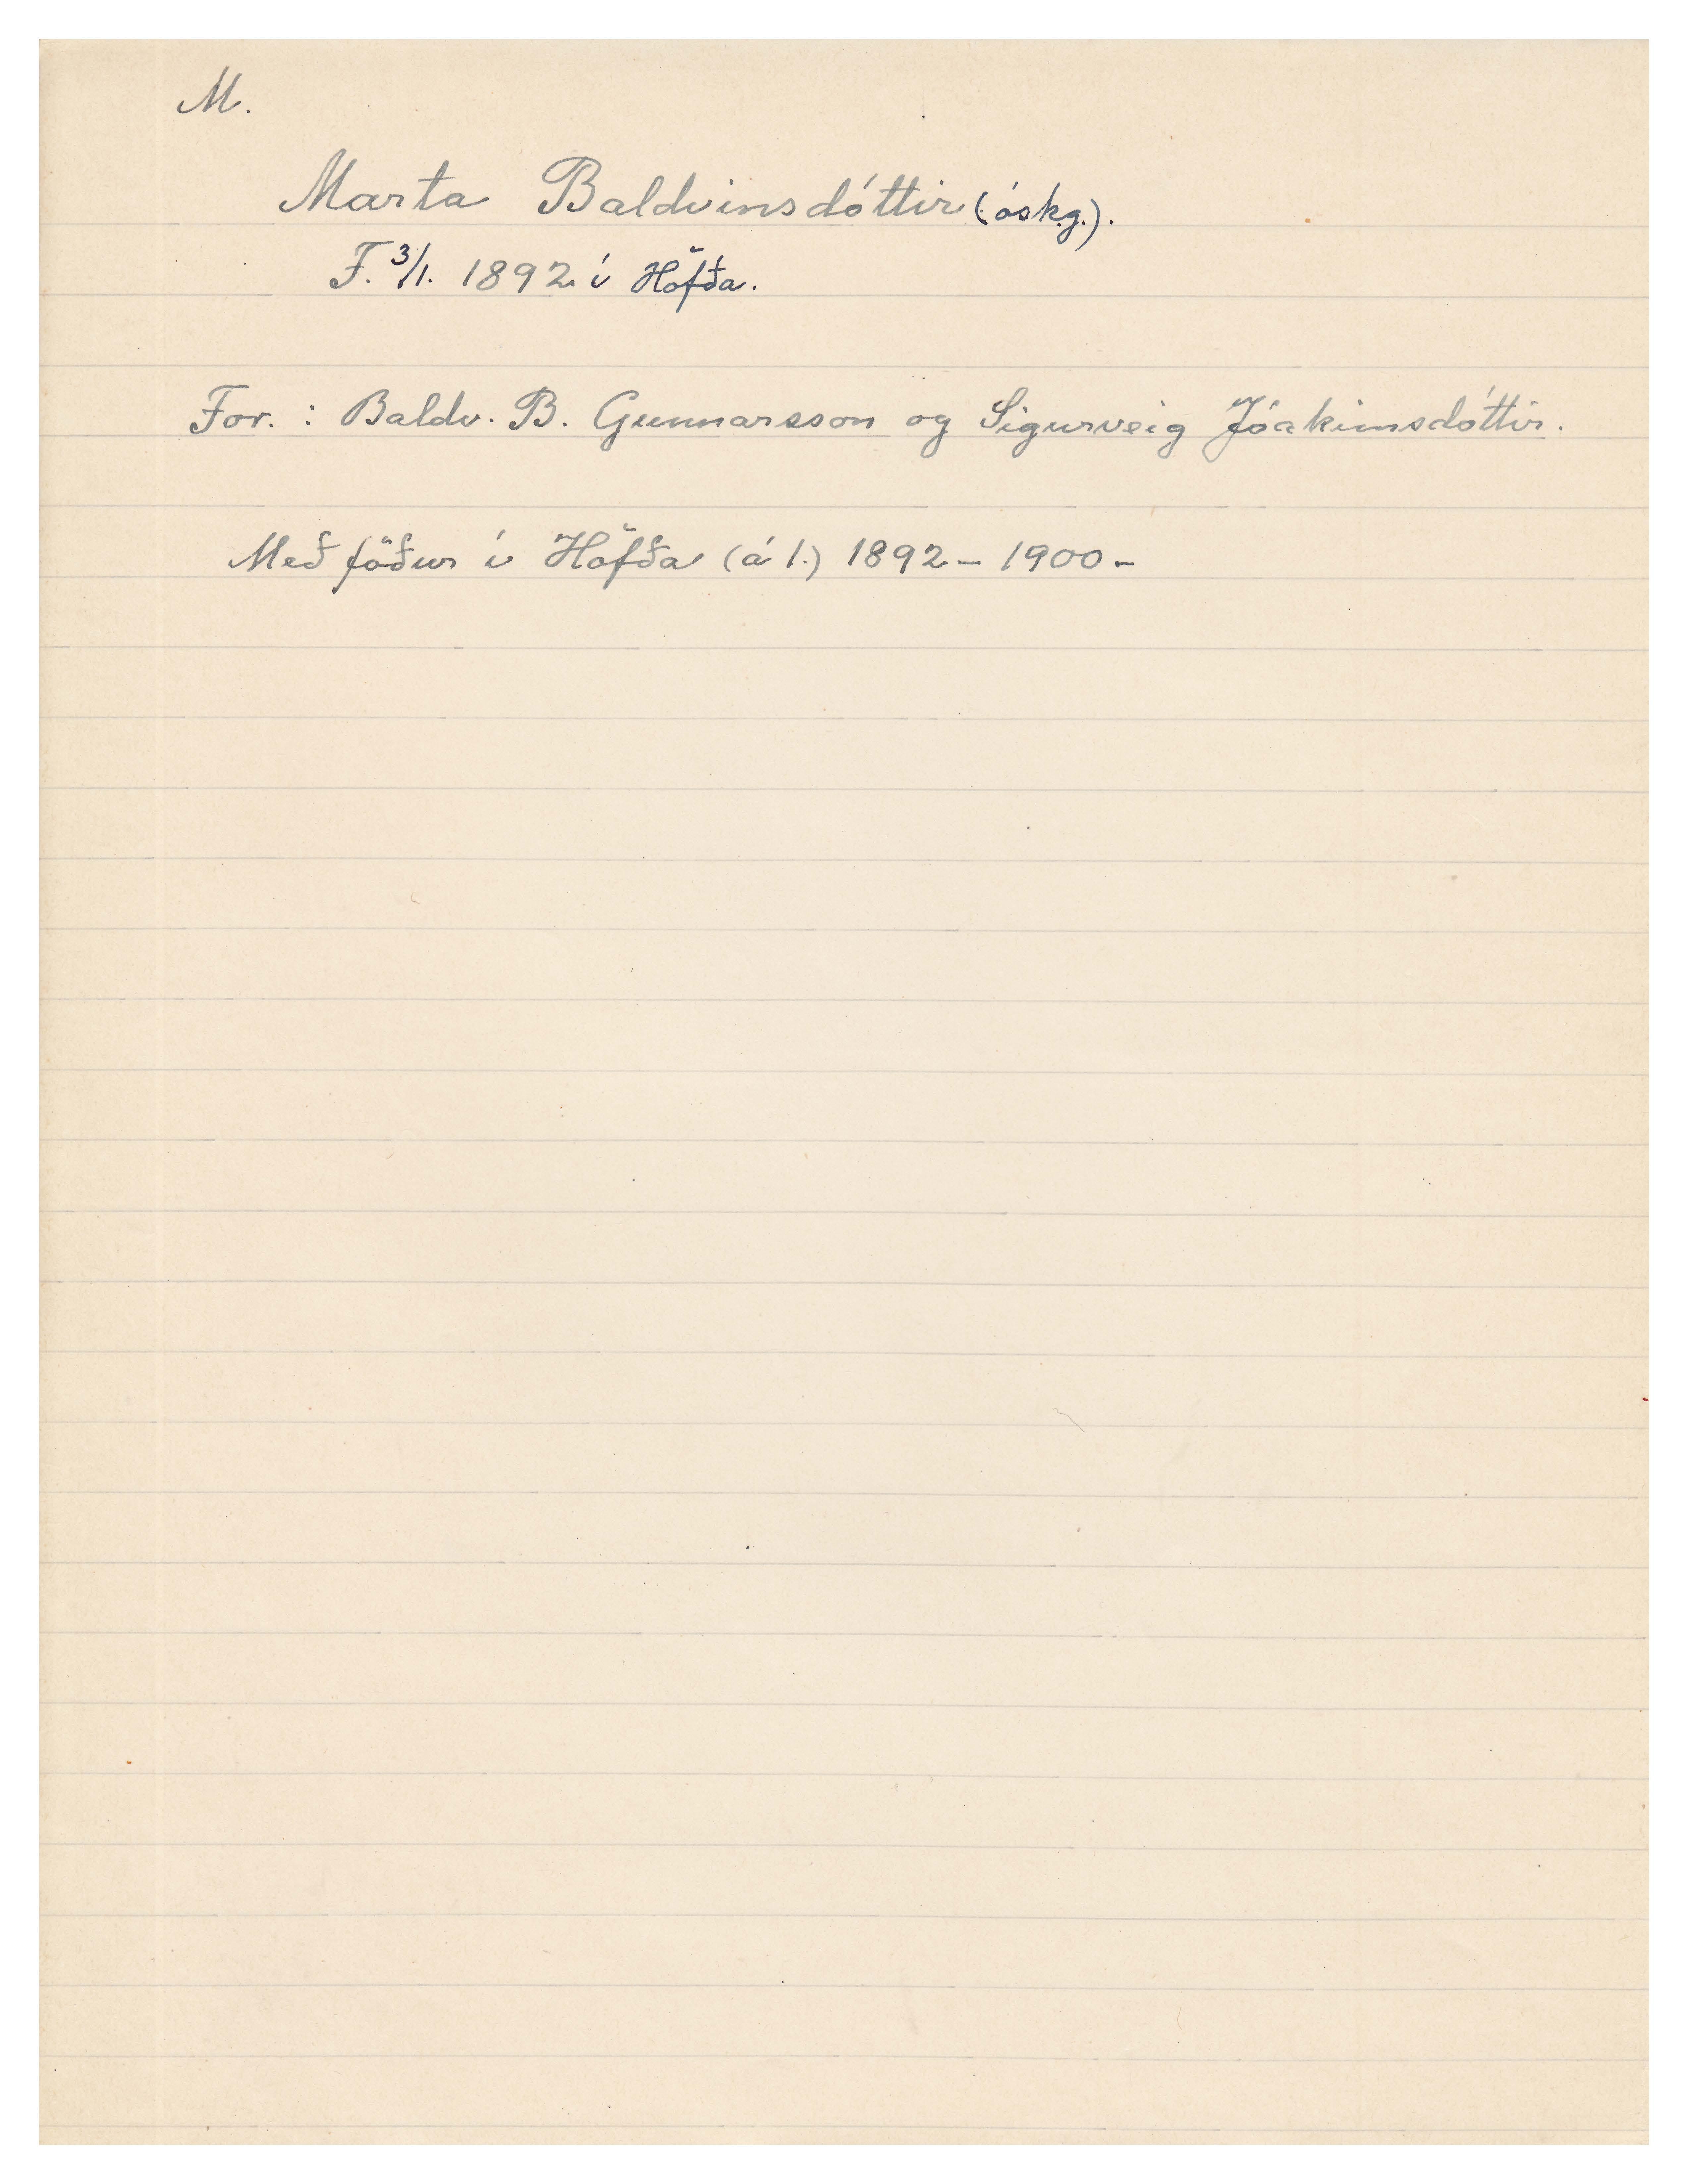 M.
Marta Baldvinsdóttir (óskg.).
F. 3/1. 1892 í Höfða.
For. : Baldv. B. Gunnarsson og Sigurveig Jóakimsdóttir.
Með föður í Höfða (á 1.) 1892 - 1900 -